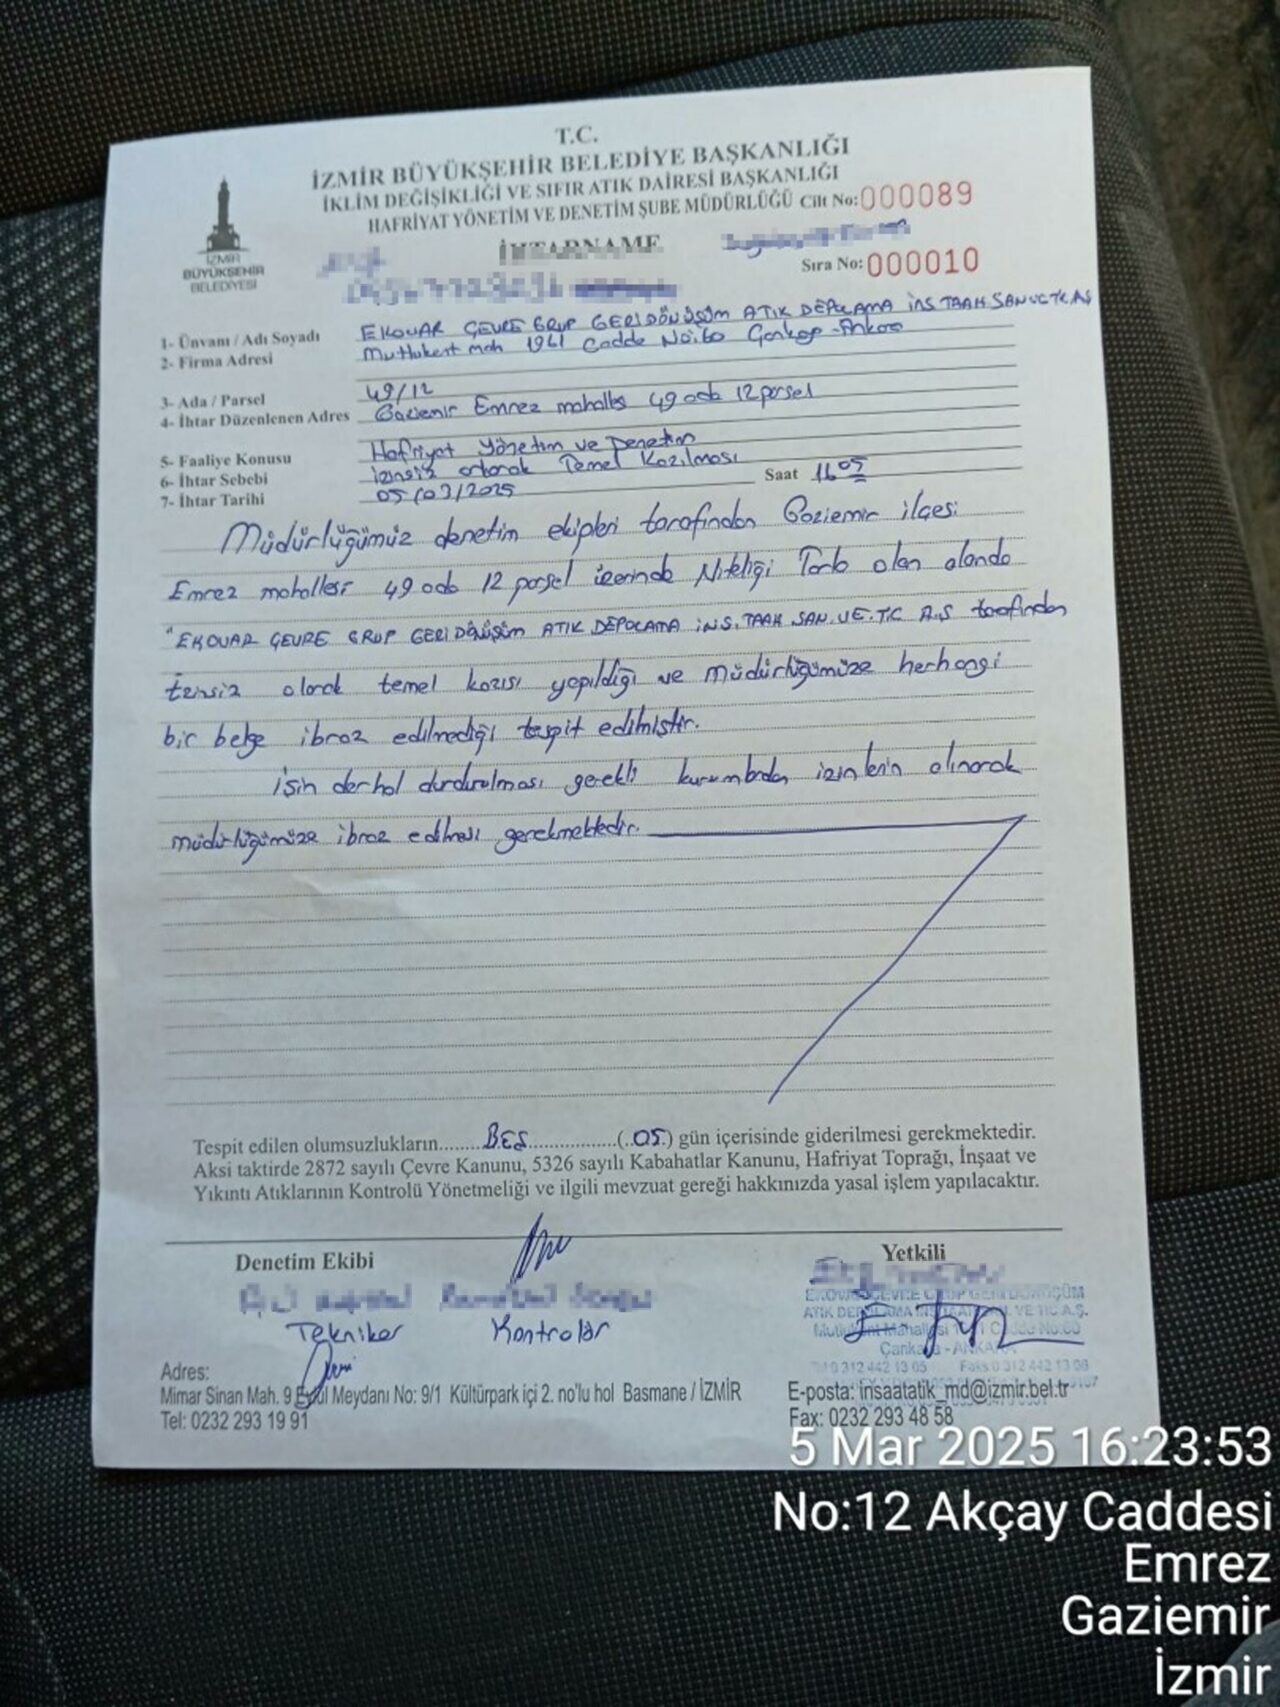 T.C.
İZMİR BÜYÜKŞEHİR BELEDİYE BAŞKANLIĞI
İKLİM DEĞİŞİKLİĞİ VE SIFIR ATIK DAİRESİ BAŞKANLIĞI
HAFRİYAT YÖNETİM VE DENETİM ŞUBE MÜDÜRLÜĞÜ Cilt No: 000089
İHTARNAME
İZMİR
BÜYÜKŞEHİR
BELEDİYESİ
Sıra No: 000010
1- Ünvanı / Adı Soyadı EKOVAR ÇEVRE GRUP GERİ DÖNÜŞÜM ATIK DEPOLAMA İNŞ TAAH SAN VE TİC AŞ
2- Firma Adresi Mutlukent mah 1961 Cadde No:60 Çankaya-Ankara
3- Ada / Parsel 49/12
4- İhtar Düzenlenen Adres Gaziemir Emrez mahalles 49 ada 12 parsel
5- Faaliye Konusu Hafriyat Yönetim ve Denetim
6- İhtar Sebebi İzinsiz olarak Temel Kazılması
7- İhtar Tarihi 05/03/2025 Saat 16 05
Müdürlüğümüz denetim ekipleri tarafından Gaziemir ilçesi
Emrez mahallesi 49 ada 12 parsel üzerinde Niteliği Tarla olan alanda
"EKOVAR ÇEVRE GRUP GERİ DÖNÜŞÜM ATIK DEPOLAMA İNŞ. TAAH SAN. VE. TİC A.Ş tarafından
İzinsiz olarak temel kazısı yapıldığı ve müdürlüğümüze herhangi
bir belge ibraz edilmediği tespit edilmiştir.
İşin derhal durdurulması gerekli kurumlardan izinlerin alınarak
müdürlüğümüze ibraz edilmesi gerekmektedir.
Tespit edilen olumsuzlukların........BEŞ................(..05.) gün içerisinde giderilmesi gerekmektedir.
Aksi taktirde 2872 sayılı Çevre Kanunu, 5326 sayılı Kabahatlar Kanunu, Hafriyat Toprağı, İnşaat ve
Yıkıntı Atıklarının Kontrolü Yönetmeliği ve ilgili mevzuat gereği hakkınızda yasal işlem yapılacaktır.
Denetim Ekibi Yetkili
Tekniker Kontrolör
EKOVAR ÇEVRE GRUP GERİ DÖNÜŞÜM
ATIK DEPOLAMA VE TİC A.Ş.
Mutlukent Mahallesi No:60
Çankaya - ANKARA
0 312 442 13 05 Faks 0 312 442 13 08
Adres:
Mimar Sinan Mah. 9 Eylül Meydanı No: 9/1 Kültürpark içi 2. no'lu hol Basmane / İZMİR
Tel: 0232 293 19 91
E-posta: insaatatik_md@izmir.bel.tr
Fax: 0232 293 48 58
5 Mar 2025 16:23:53
No:12 Akçay Caddesi
Emrez
Gaziemir
İzmir